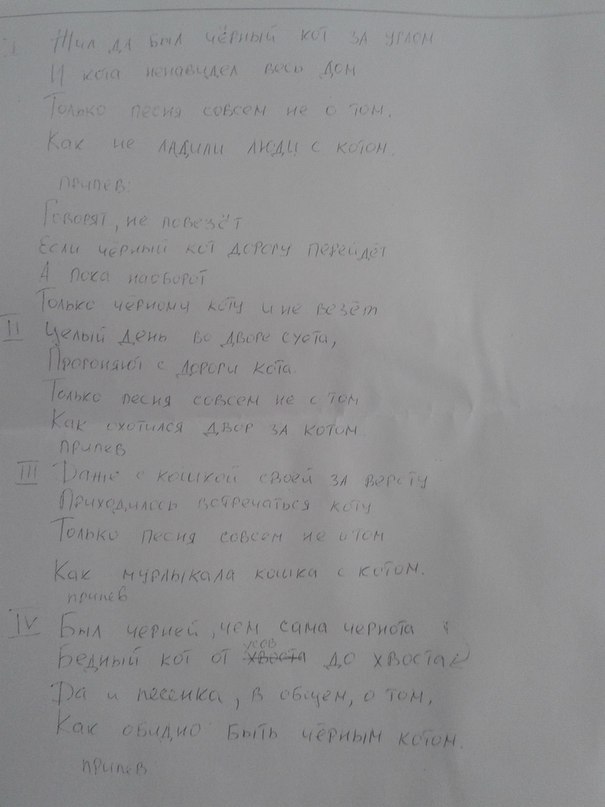 I Жил да был чёрный кот за углом
И кота ненавидел весь дом
Только песня совсем не о том,
Как не ладили люди с котом.
припев:
Говорят, не повезёт
Если чёрный кот дорогу перейдёт
А пока наоборот
Только чёрному коту и не везёт
II Целый день во дворе суета,
Прогоняют с дороги кота.
Только песня совсем не о том
Как охотился двор за котом.
припев
III Даже с кошкой своей за версту
Приходилось встречаться коту
Только песня совсем не о том
Как мурлыкала кошка с котом.
припев
IV Был черней, чем сама чернота
усов
Бедный кот от хвоста до хвоста
Да и песенка, в общем, о том,
Как обидно быть чёрным котом.
припев